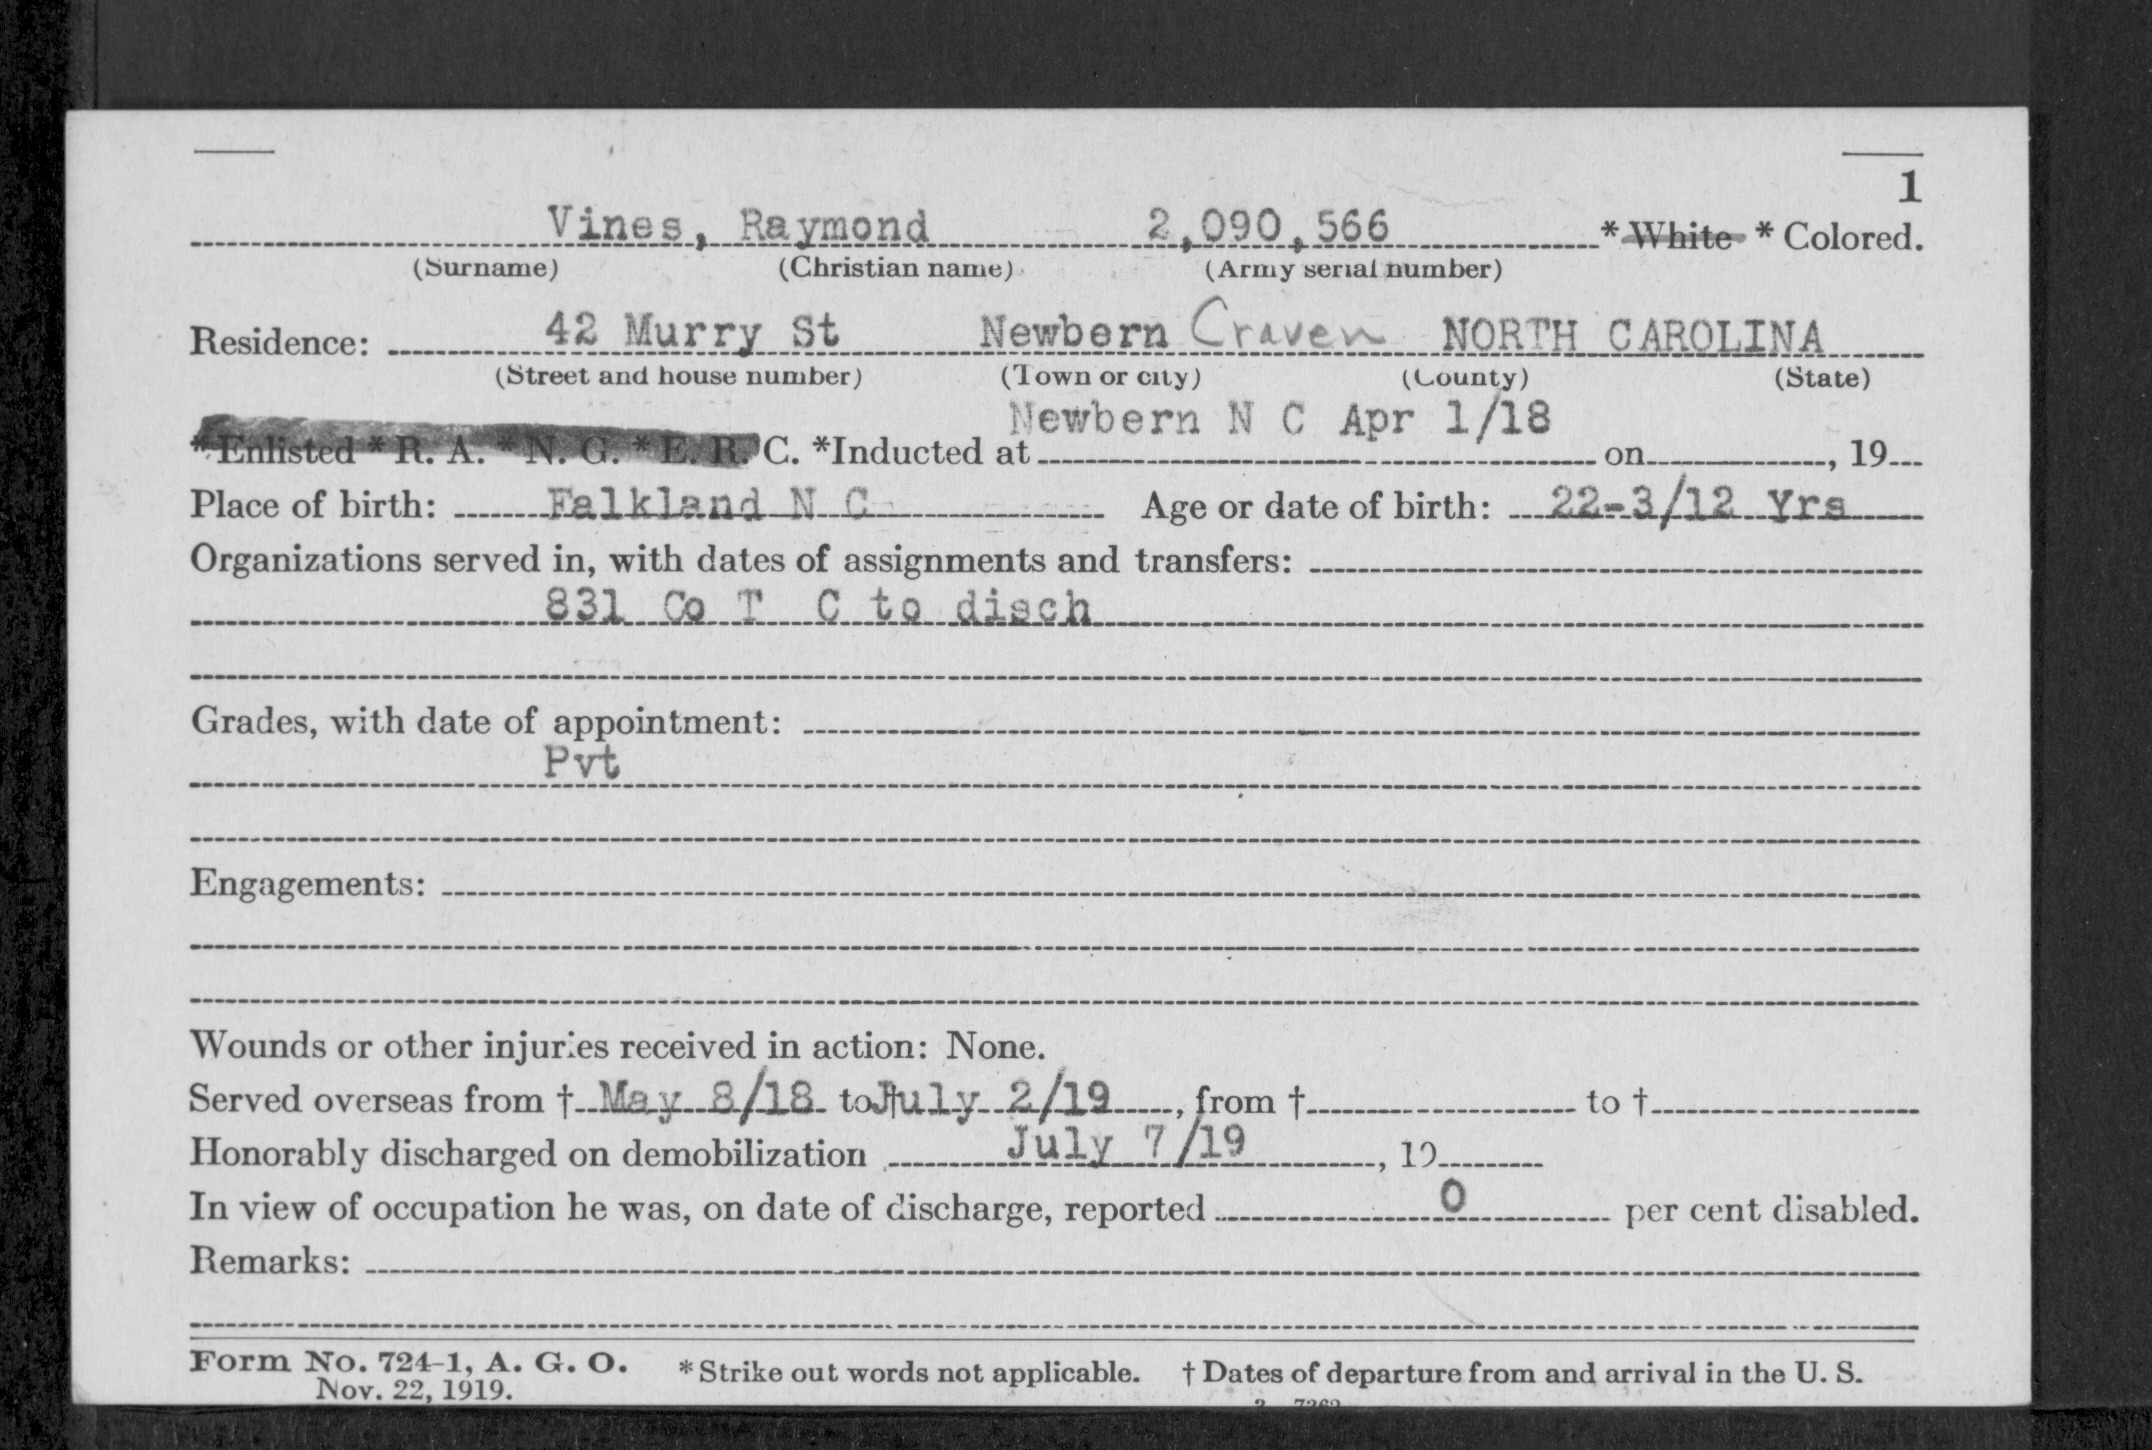 1
Vines, Raymond 2,090,566 * White * Colored.
(Surname) (Christian name) (Army serial number)
Residence: 42 Murry St Newbern Craven NORTH CAROLINA
(Street and house number) (Town or city) (County) (State)
Newbern N C Apr 1/18
*Enlisted * R. A. * N. G. * E. R. C. *Inducted at on , 19
Place of birth: Falkland N C Age or date of birth: 22-3/12 Yrs
Organizations served in, with dates of assignments and transfers:
831 Co T C to disch
Grades, with date of appointment:
Pvt
Engagements:
Wounds or other injuries received in action: None.
Served overseas from † May 8/18 to † July 2/19, from † to †
Honorably discharged on demobilization July 7/19, 19
In view of occupation he was, on date of discharge, reported 0 per cent disabled.
Remarks:
Form No. 724-1, A. G. O. *Strike out words not applicable. † Dates of departure from and arrival in the U. S.
Nov. 22, 1919.